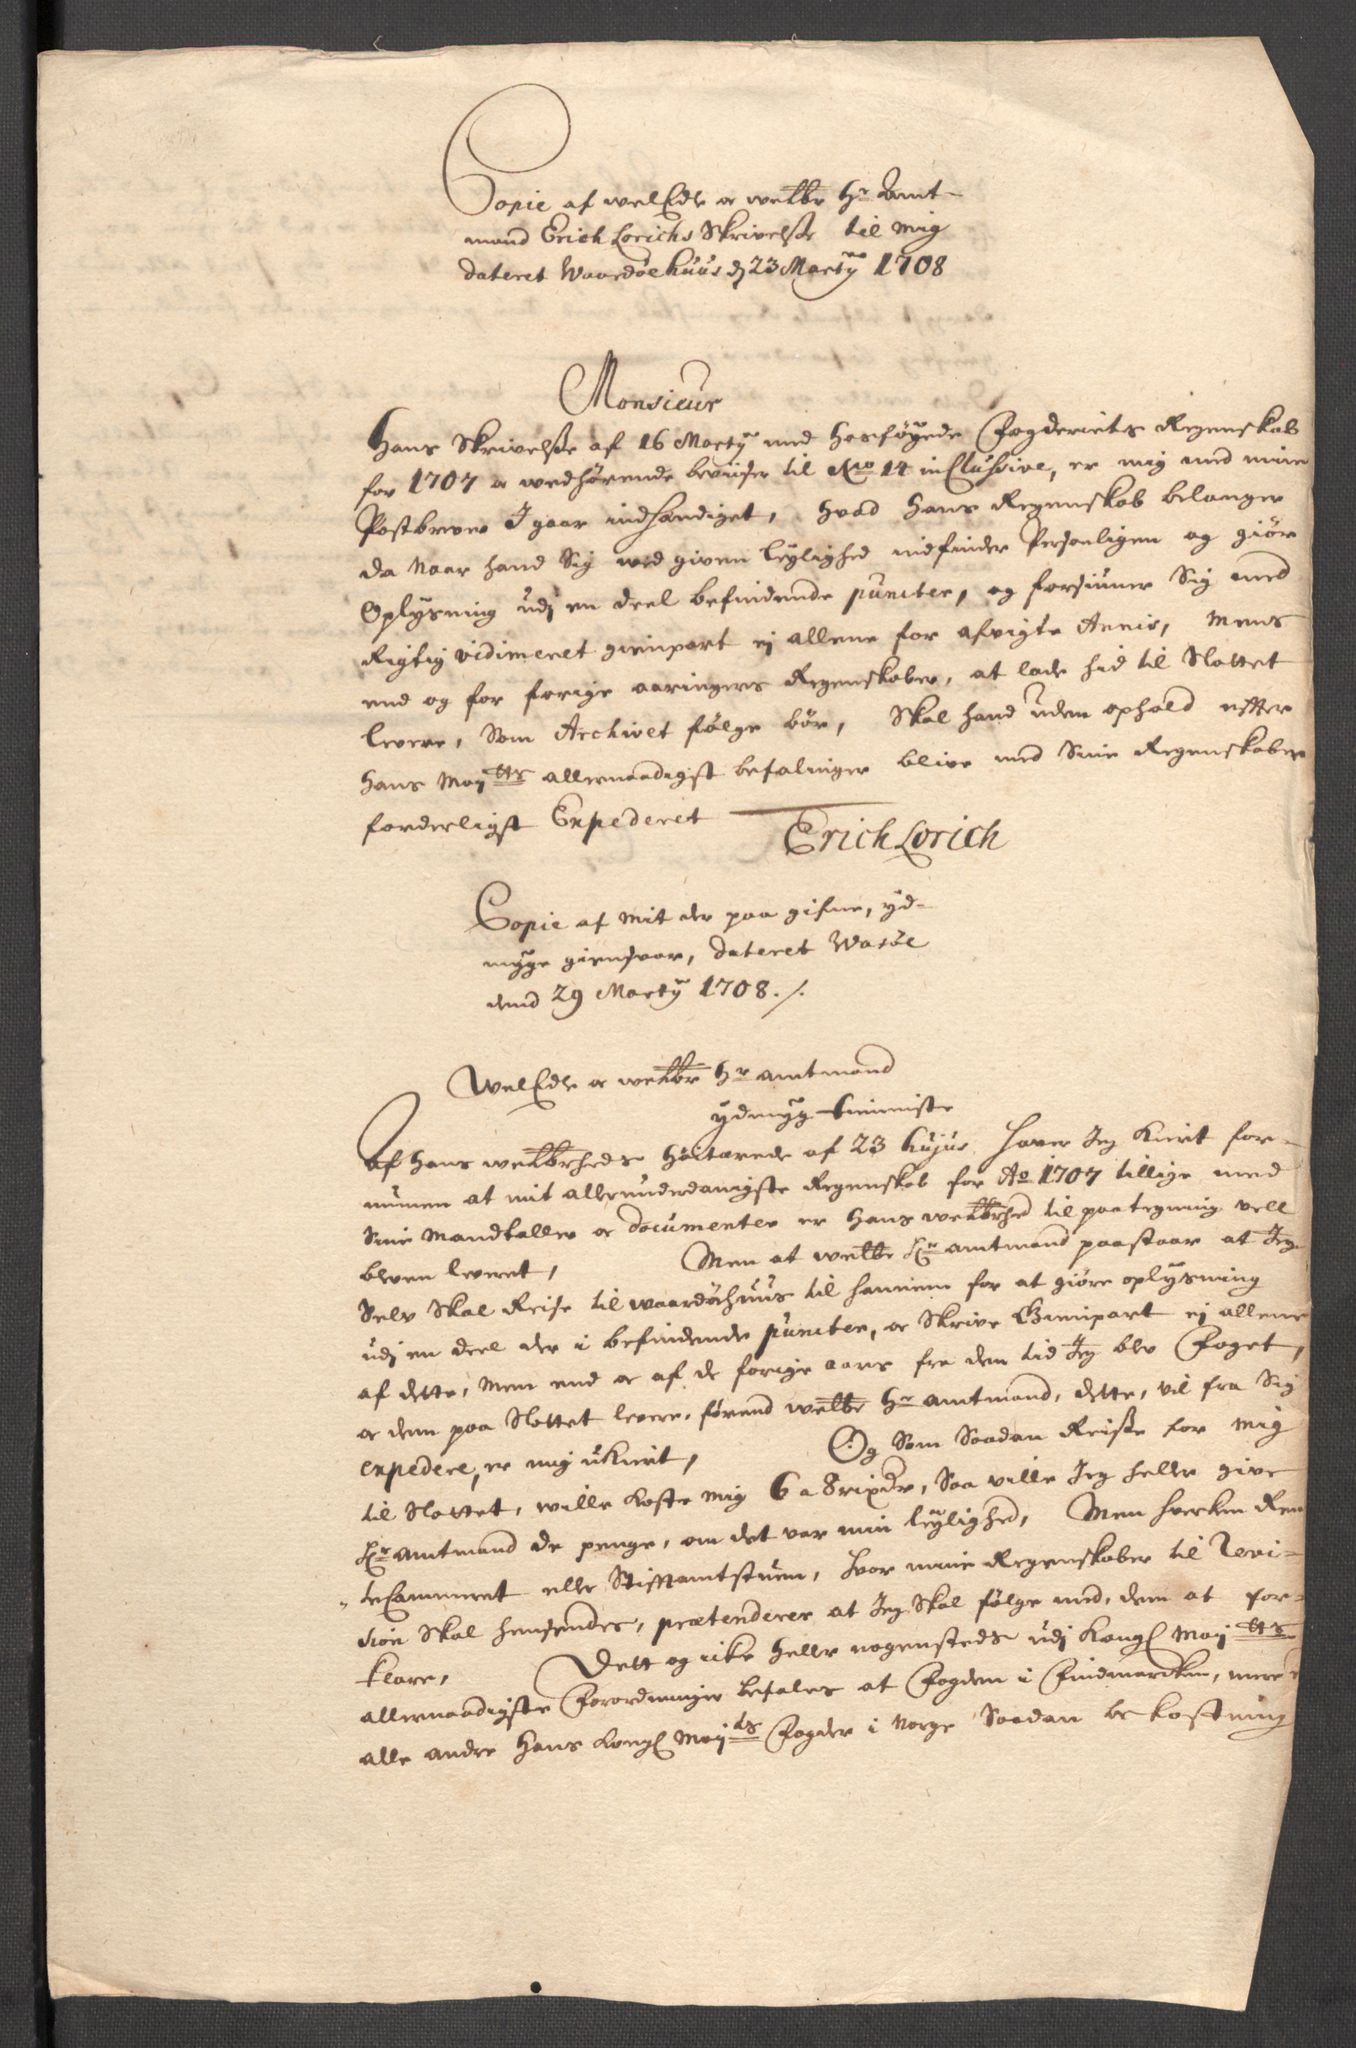 Copie af welEdle oc welbr Hr Amt-
mand Erich Lorichs Skrivelse til mig
dateret Waardöehuus dj 23 Martij 1708
Monsieur
Hans Skrivelse af 16 Martij med hosföyede Fogderiets Regenskab
for 1707 oc wedhörende beviiser til No 14 inClusive, er mig med mine
Postbrewe Igaar indhændiget, hvad hans Regenskab belanger
da naar hand Sig wed given leylighed indfinder Personligen og giör
Oplysning udj en deel befindende puncter, og forsiuner Sig med
Rigtig vidimeret gienpart ej allene for afvigte Annis, mens
end og for forige aaringers Regenskaber, at lade hid til Slottet
levere, Som Archivet fölge bör, Skal hand uden ophold effter
Hans Mayttz allernaadigst befalinger blive med Sine Regenskaber
forderligst Expederet
Erich Lorich
Copie af mit der paa gifne, yd-
myge giensvar, dateret Wasöe
dend 29 Martij 1708 ./.
WelEdle oc welbr Hr amtmand
ydmyg tieniste
Af hans welbrheds höitærede af 23 hujus haver Jeg kunt for-
nummen at mit allerunderdanigste Regenskab for Ao 1707 tillige med
Sine Mandtaller oc documenter er hans welbrhed til paategning vell
bleven leveret, Men at welbr Hr amtmand paastaar at Jeg
Selv Skal Reise til waardöehuus til hannem for at giöre oplysning
udj en deel der i befindende puncter, oc Skrive Gienpart ej allene
af dette, Men end oc af de forige aars fra den tid Jeg blev Foget,
oc dem paa Slottet levere, förend welbr Hr amtmand, dette, vil fra Sig
expedere, er mig ukunt, Og Som Saadan Reise for mig
til Slottet, wille koste mig 6 a 8 rixdr, Saa ville Jeg heller give
Hr amtmand de penge, om det var min leylighed, Men hverken Ren
teCammeret eller Stifftamtstuen, hvor mine Regenskaber til Revi-
sion Skal hensendes, prætenderer at Jeg Skal fölge med, dem at for-
klare, Dett og icke heller nogensteds udj Kongl Mayttz
allernaadigste Forordninger befales at Fogden i Findmarcken, mere
alle andre Hans Kongl Mayts Fogder i Norge Saadan bekostning